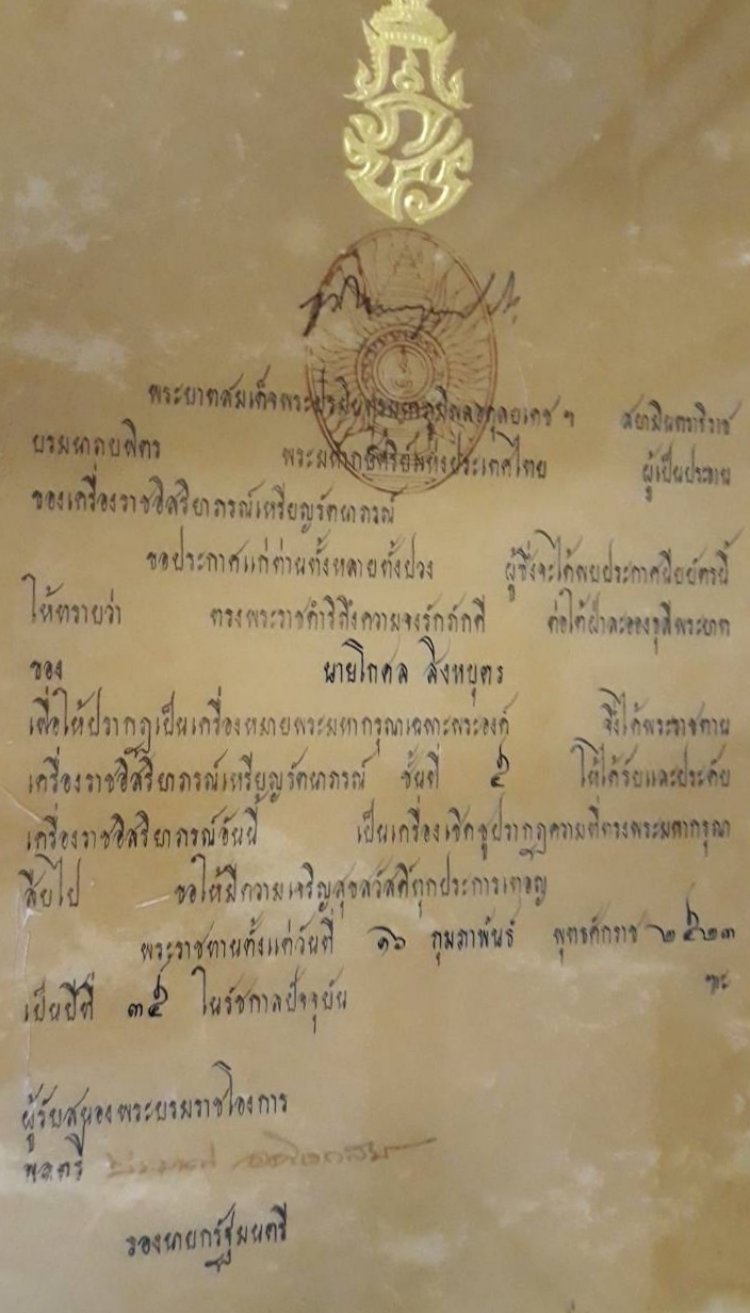 พระบาทสมเด็จพระปรมินทรมหาภูมิพลอดุลยเดช ฯ สยามินทราธิราช
บรมนาถบพิตร พระมหากษัตริย์แห่งประเทศไทย ผู้เป็นประธาน
ของเครื่องราชอิสริยาภรณ์เหรียญรัตนาภรณ์
ขอประกาศแก่ท่านทั้งหลายทั้งปวง ผู้ซึ่งจะได้พบประกาศนียบัตรนี้
ให้ทราบว่า ทรงพระราชดำริถึงความจงรักภักดี ต่อใต้ฝ่าละอองธุลีพระบาท
ของ นายโกศล สิงหบุตร
เพื่อให้ปรากฏเป็นเครื่องหมายพระมหากรุณาเฉพาะพระองค์ จึงได้พระราชทาน
เครื่องราชอิสริยาภรณ์เหรียญรัตนาภรณ์ ชั้นที่ ๕ ให้ได้รับและประดับ
เครื่องราชอิสริยาภรณ์อันนี้ เป็นเครื่องเชิดชูปรากฏความที่ทรงพระมหากรุณา
สืบไป ขอให้มีความเจริญสุขสวัสดิ์ทุกประการเทอญ
พระราชทานตั้งแต่วันที่ ๑๖ กุมภาพันธ์ พุทธศักราช ๒๕๒๓
เป็นปีที่ ๓๕ ในรัชกาลปัจจุบัน
ผู้รับสนองพระบรมราชโองการ
พลตรี
รองนายกรัฐมนตรี